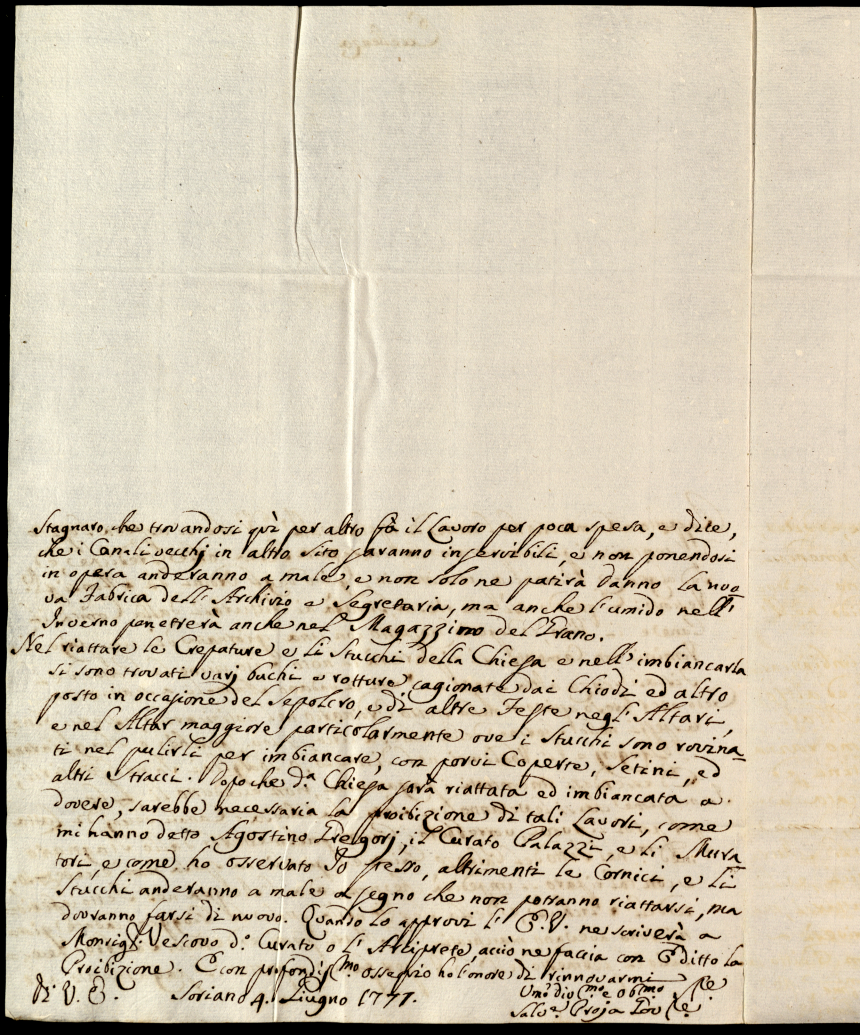 Stagnaro, che trovandosi quì per altro fà il Lavoro per poca spesa, e dice,
che i Canali vecchj in altro sito saranno inservibili, e non ponendosi
in opera anderanno a male, e non solo ne patirà danno la nuo
va Fabrica dell'Archivio e Segretaria, ma anche l'umido nell'
Inverno penetrerà anche nel Magazzino del Grano.
Nel riattare le Crepature e li Stucchi della Chiesa e nell'imbiancarla
si sono trovati varj buchi e rotture cagionate dai Chiodi ed altro
posto in occasione del Sepolcro, e di altre Feste negl'Altari,
e nel Altar maggiore particolarmente ove i Stucchi sono rovina-
ti nel pulirli per imbiancare, con porvi Coperte, Setini, ed
altri Stracci. Dopo che d.ª Chiesa sarà riattata ed imbiancata a
dovere, sarebbe necessaria la proibizione di tali Lavori, come
mi hanno detto Agostino Gregorj, il Curato Palazzi, e li Mura
tori, e come ho osservato Io stesso, altrimenti le Cornici, e li
Stucchi anderanno a male a segno che non potranno riattarsi, ma
dovranno farsi di nuovo. Quando lo approvi l'E.V. ne scriverà a
Monsig.r Vescovo d.º Curato o l'Arciprete, acciò ne faccia con Editto la
Proibizione. E con profondiss.mo ossequio ho l'onore di rinnovarmi
di V. E. Soriano 4. Giugno 1771.
Um.o div.mo e obb.mo
Salv.e Proja